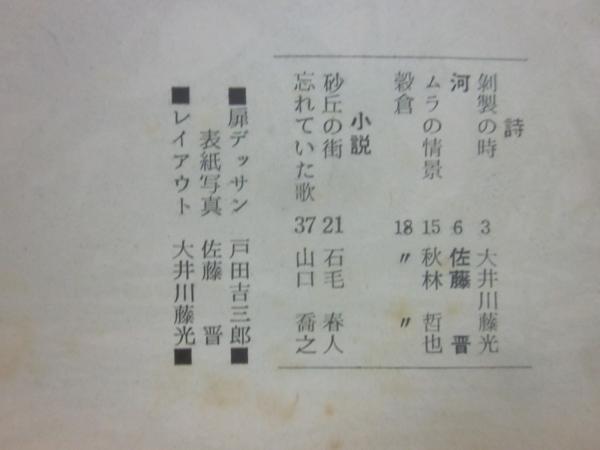 詩
剝製の時 3 大井川藤光
河 6 佐藤 晋
ムラの情景 15 秋林 哲也
穀倉 18 〃 〃
小説
砂丘の街 21 石毛 春人
忘れていた歌 37 山口 喬之
■扉デッサン 戸田吉三郎■
表紙写真 佐藤 晋
■レイアウト 大井川藤光■